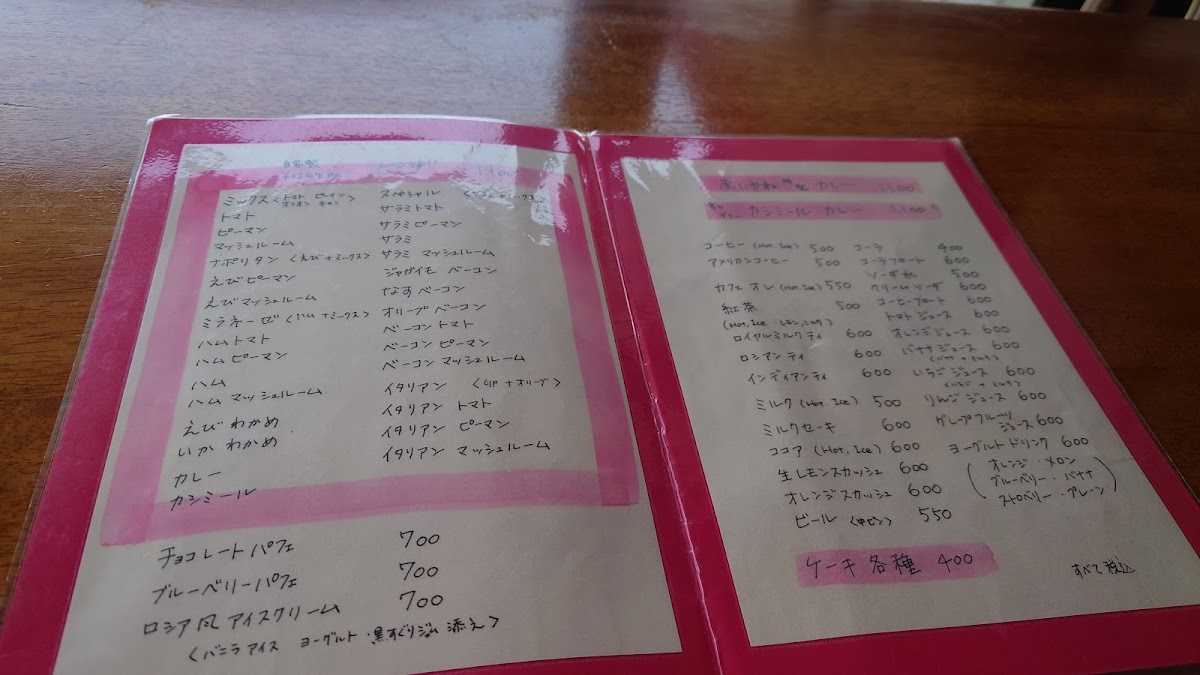 ミックス〈トマト ピーマン オニオン きのこ〉
トマト
ピーマン
マッシュルーム
ナポリタン〈えび+ミックス〉
えびピーマン
えびマッシュルーム
ミラネーゼ〈ハム+ミックス〉
ハムトマト
ハムピーマン
ハム
ハムマッシュルーム
えびわかめ
いかわかめ
カレー
カシミール
スペシャル
サラミトマト
サラミピーマン
サラミ
サラミ マッシュルーム
ジャガイモ ベーコン
なすベーコン
オリーブ ベーコン
ベーコン トマト
ベーコン ピーマン
ベーコン マッシュルーム
イタリアン
イタリアン トマト
イタリアン ピーマン
イタリアン マッシュルーム
チョコレートパフェ 700
ブルーベリーパフェ 700
ロシア風アイスクリーム 700
〈バニラアイス ヨーグルト・黒すぐりジャム 添え〉
カレー 1100
カシミールカレー 1100
コーヒー(Hot, Ice) 500
アメリカンコーヒー 500
カフェオレ(Hot, Ice) 550
紅茶 500
(Hot, Ice・レモン,ミルク)
ロイヤルミルクティ 600
ロシアンティ 600
インディアンティ 600
ミルク(Hot, Ice) 500
ミルクセーキ 600
ココア(Hot, Ice) 600
生レモンスカッシュ 600
オレンジスカッシュ 600
ビール〈中ビン〉 550
コーラ 400
コーラフロート 600
ソーダ水 500
クリームソーダ 600
コーヒーフロート 600
トマトジュース 600
オレンジジュース 600
バナナジュース 600
(バナナ+ミルク)
いちごジュース 600
(いちご+ミルク)
りんごジュース 600
グレープフルーツ
ジュース 600
ヨーグルトドリンク 600
(オレンジ・メロン
ブルーベリー・バナナ
ストロベリー・プレーン)
ケーキ各種 400
すべて税込